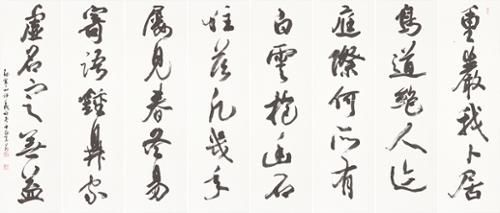 重巖我卜居
鳥道絕人迹
庭際何所有
白雲抱幽石
住茲凡幾年
屢見春冬易
寄語鍾鼎家
虛名定無益